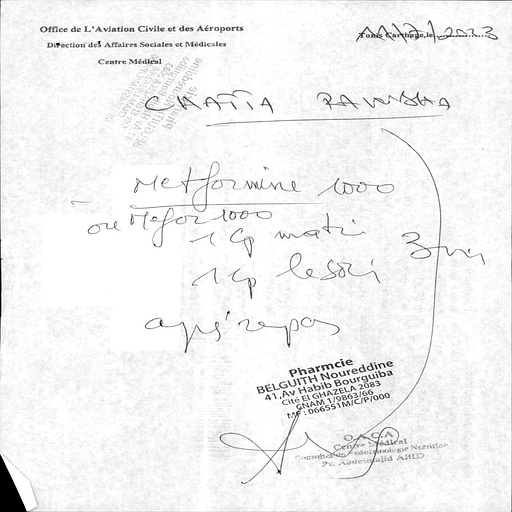 Office de L'Aviation Civile et des Aéroports
Direction des Affaires Sociales et Médicales
Centre Médical
Tunis Carthage, le 11/7/2023
CHATTA
Metformine 1000
ou Mefor 1000
1 cp matin
1 cp le soir
3 m
après repas
Pharmcie
BELGUITH Noureddine
41, Av Habib Bourguiba
Cité El GHAZELA 2083
CNAM 1/9863/66
MF : 066551M/C/P/000
O.A.C.A
Centre Médical
Consultation Endocrinologie Nutrition
Abdelmajid ABID